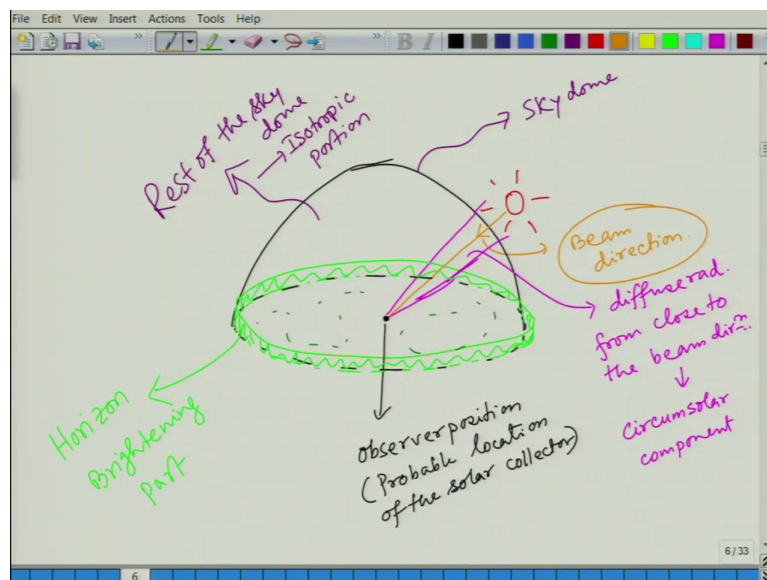 File Edit View Insert Actions Tools Help
B I
Rest of the sky
dome
→ Isotropic
portion
Sky dome
Beam
direction.
diffuse rad.
from close to
the beam dirⁿ.
Circumsolar
component
Horizon
Brightening
part
observer position
(Probable location
of the solar collector)
6/33
6